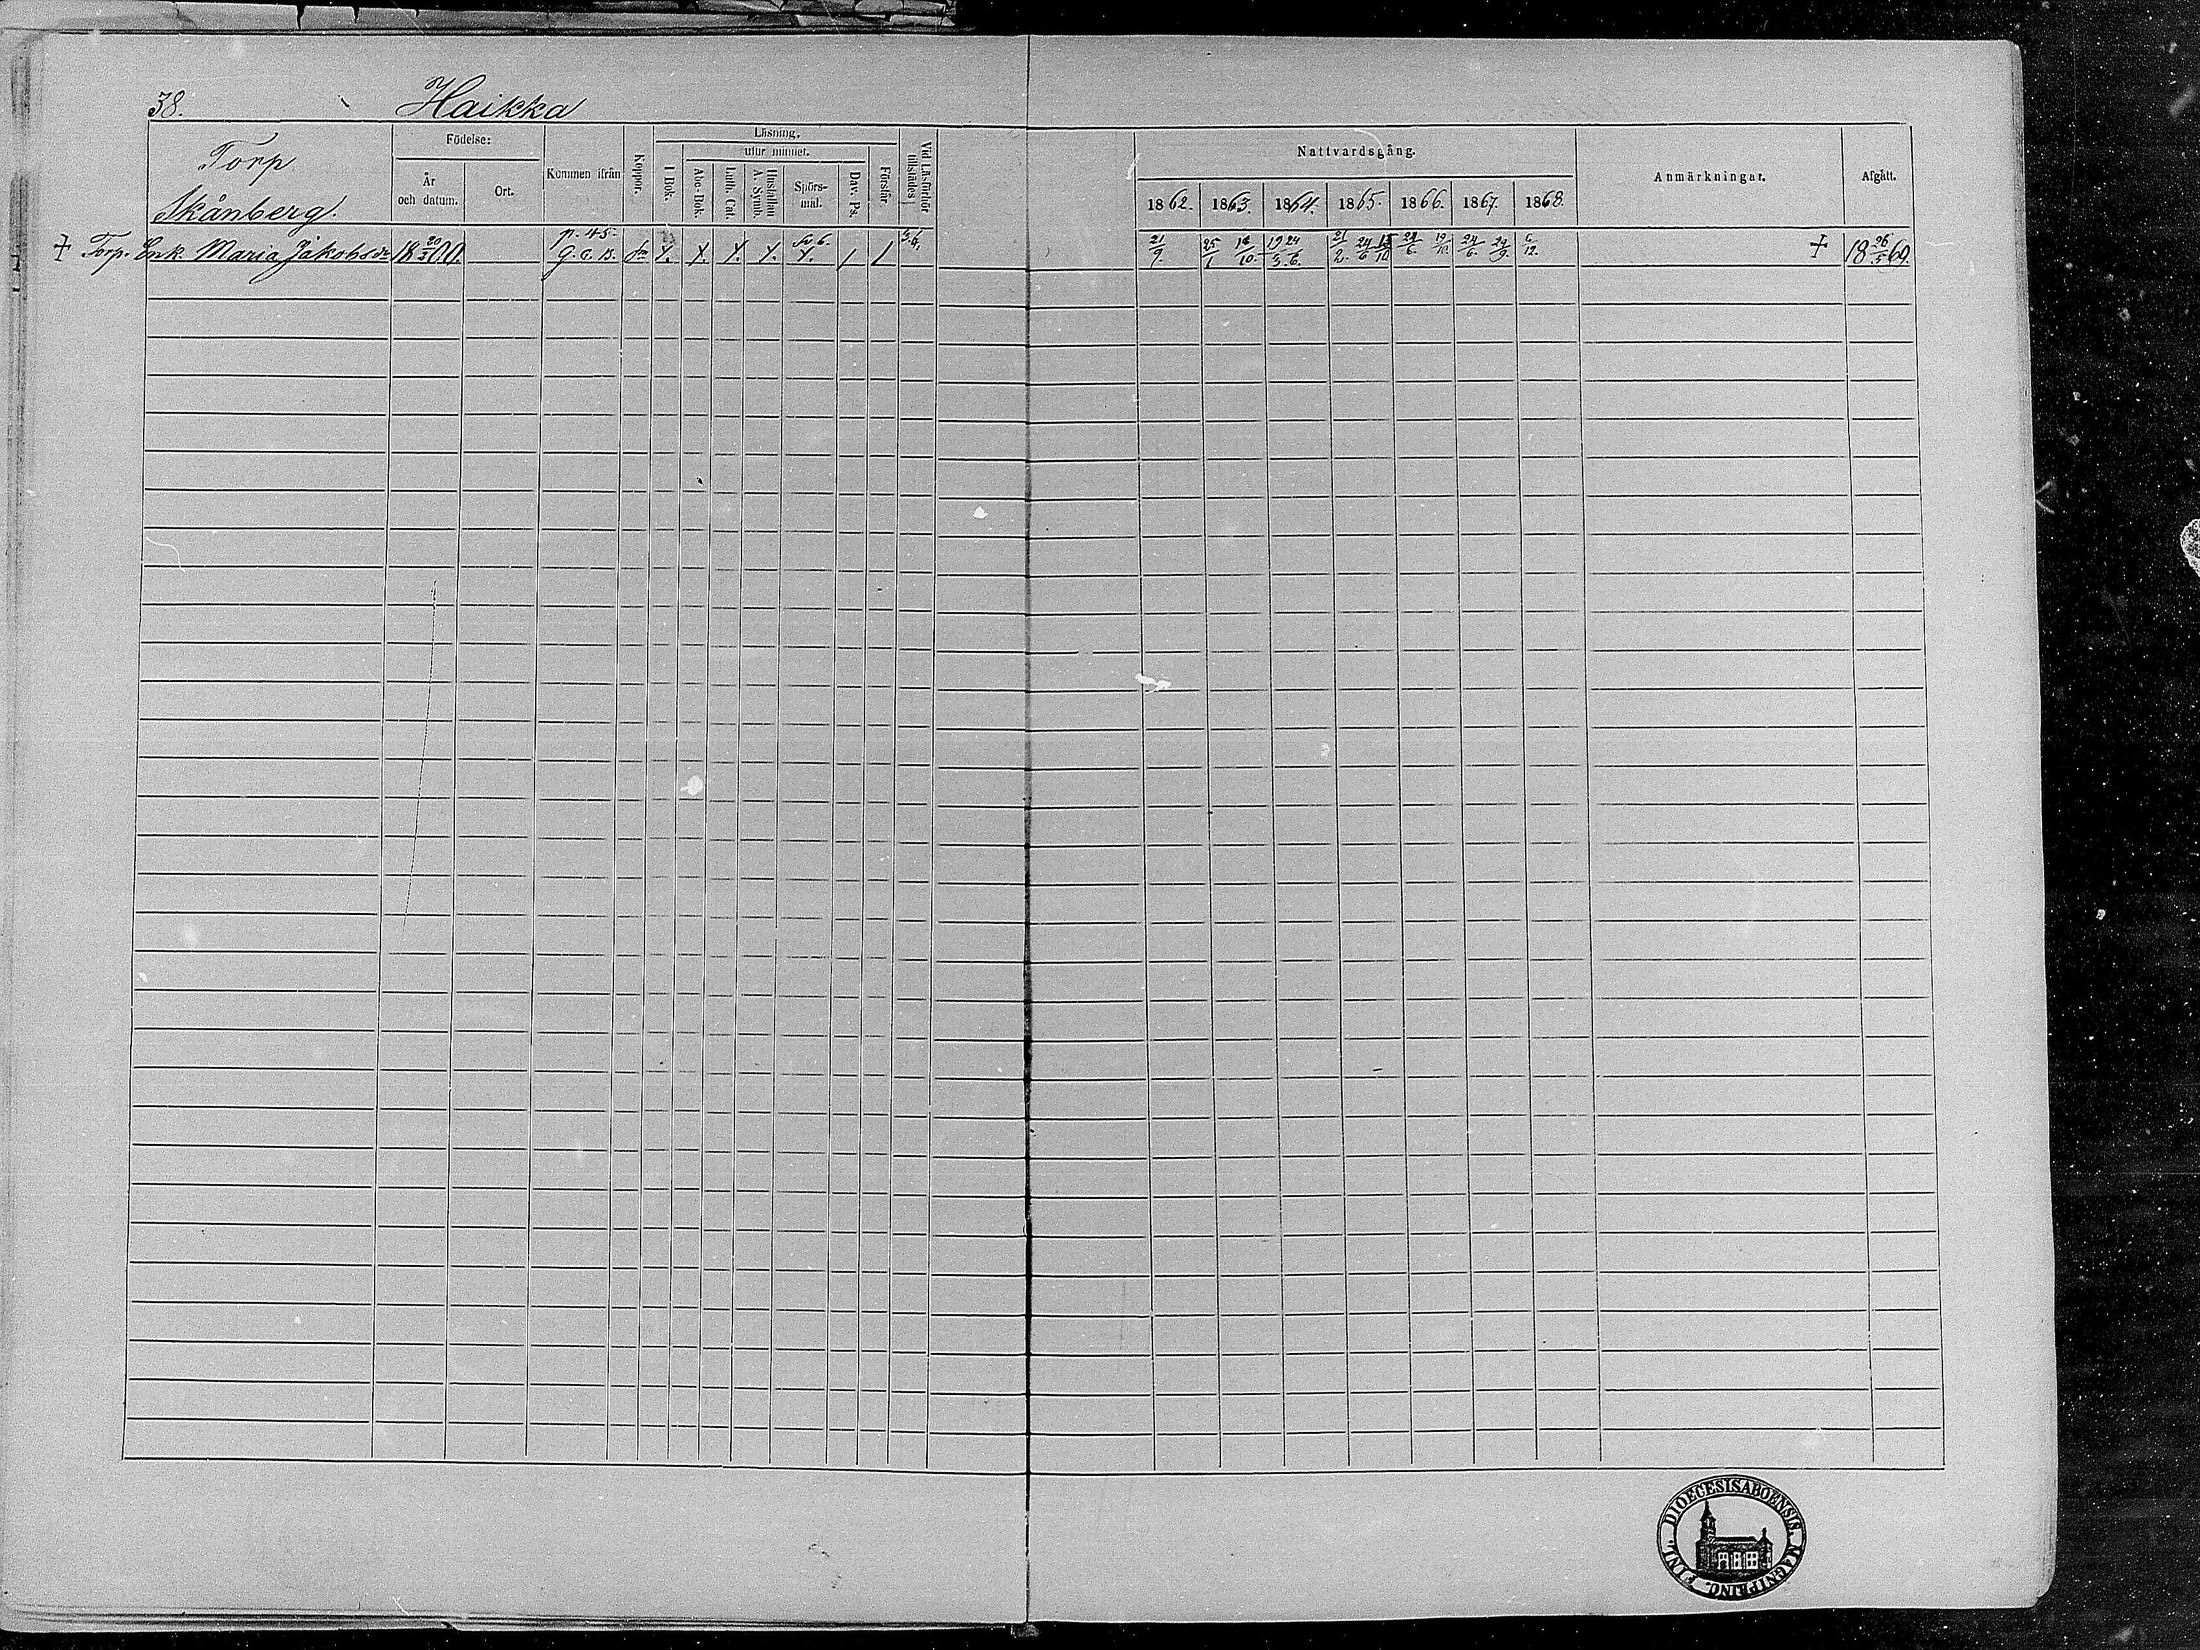 38. Haikka
Torp
Skånberg.
Födelse:
År och datum.
Ort.
Kommen ifrån
Koppor.
Läsning,
I Bok.
utur minnet.
Abc-Bok.
Luth. Cat.
Hustaflan A. Symb.
Spörs-mål.
Dav. Ps.
Förstår
Vid Läsförhör tillstädes
Nattvardsgång.
1862. 1863. 1864. 1865. 1866. 1867. 1868.
Anmärkningar.
Afgått.
p. 45.
+ Torp. Enk. Maria Jakobsdr 18 20/3 00 G. C. B. 21/9. 25/1 18/10. 19/3 24/6. 21/2. 24/6 24/6. 19/10. 24/6. 29/9. 6/12. + 18 26/5 69.
FINL. DIOECESIS ABOENSIS MAGNI PRINC.